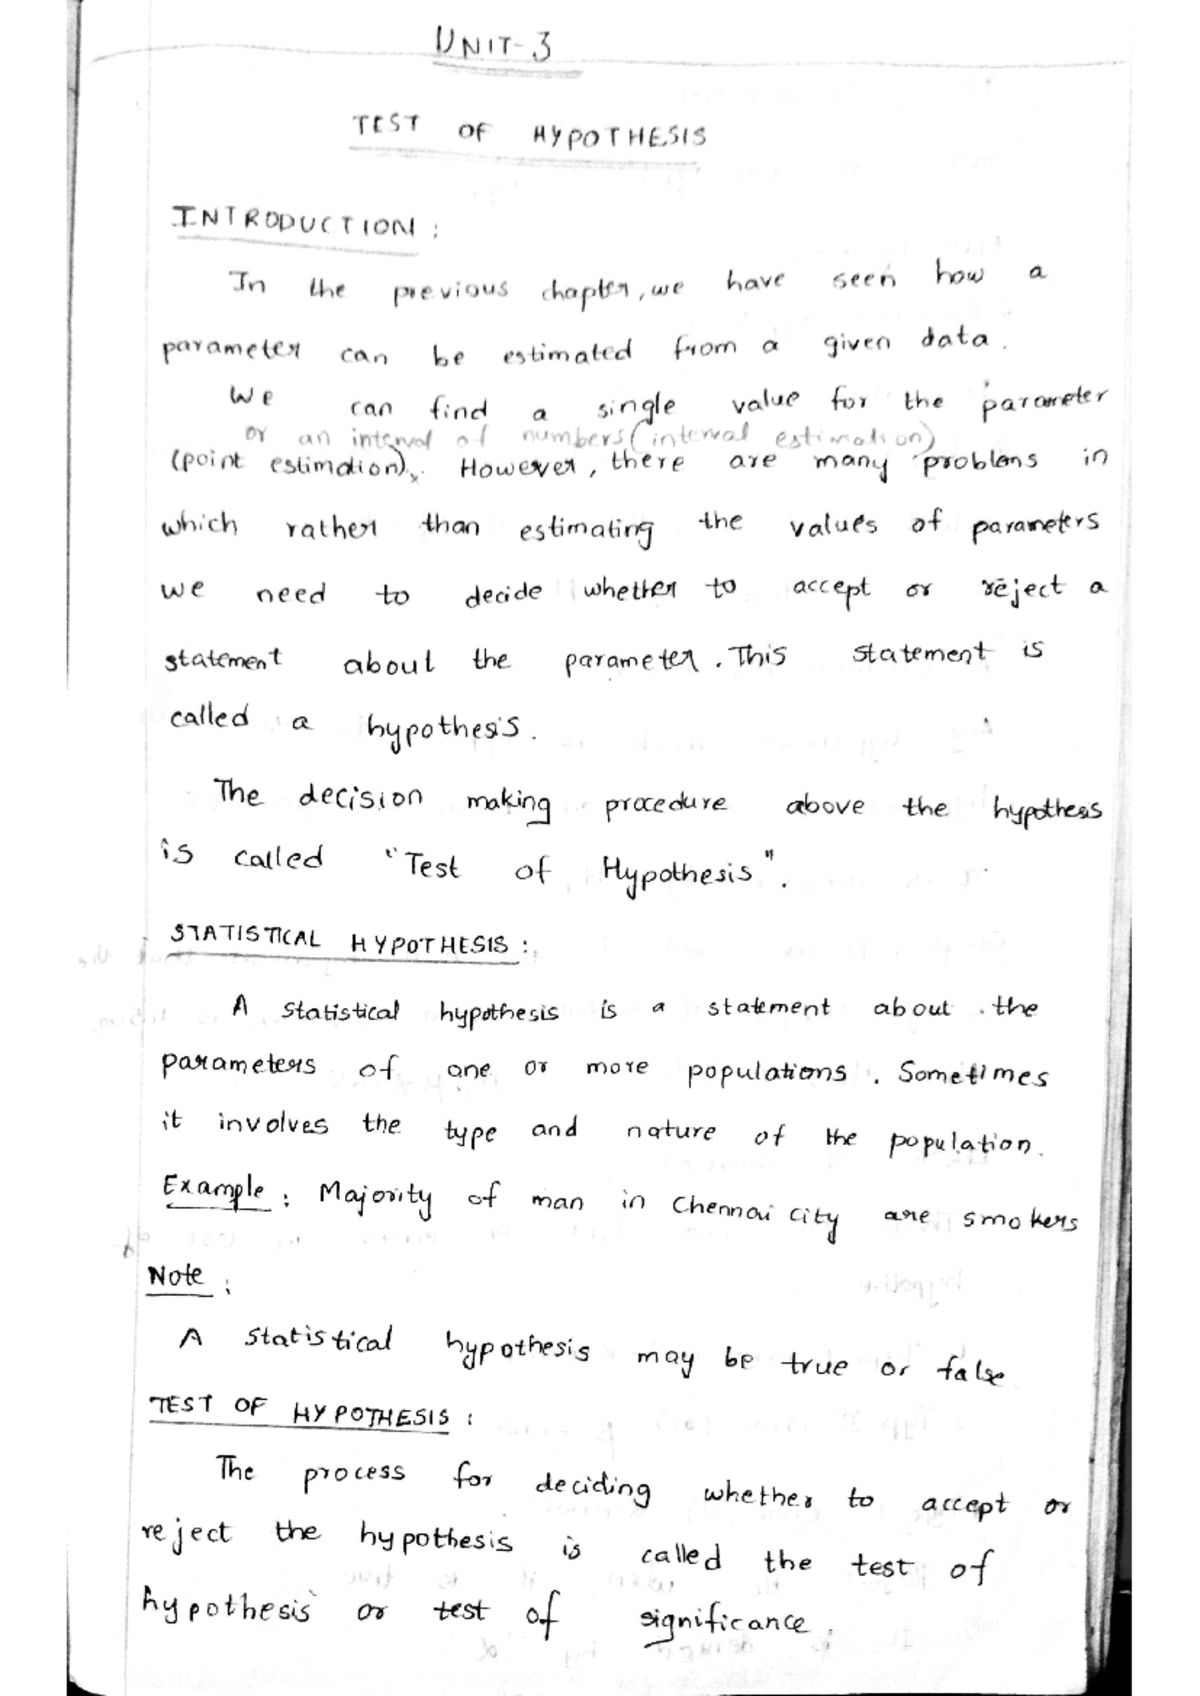 UNIT-3
TEST OF HYPOTHESIS
INTRODUCTION:
In the previous chapter, we have seen how a
parameter can be estimated from a given data.
We can find a single value for the parameter
or an interval of numbers (interval estimation)
(point estimation)x. However, there are many problems in
which rather than estimating the values of parameters
we need to decide whether to accept or reject a
statement about the parameter. This statement is
called a hypothesis.
The decision making procedure above the hypothesis
is called "Test of Hypothesis".
STATISTICAL HYPOTHESIS:
A statistical hypothesis is a statement about the
parameters of one or more populations. Sometimes
it involves the type and nature of the population.
Example: Majority of man in Chennai city are smokers
Note:
A statistical hypothesis may be true or false
TEST OF HYPOTHESIS:
The process for deciding whether to accept or
reject the hypothesis is called the test of
hypothesis or test of significance.